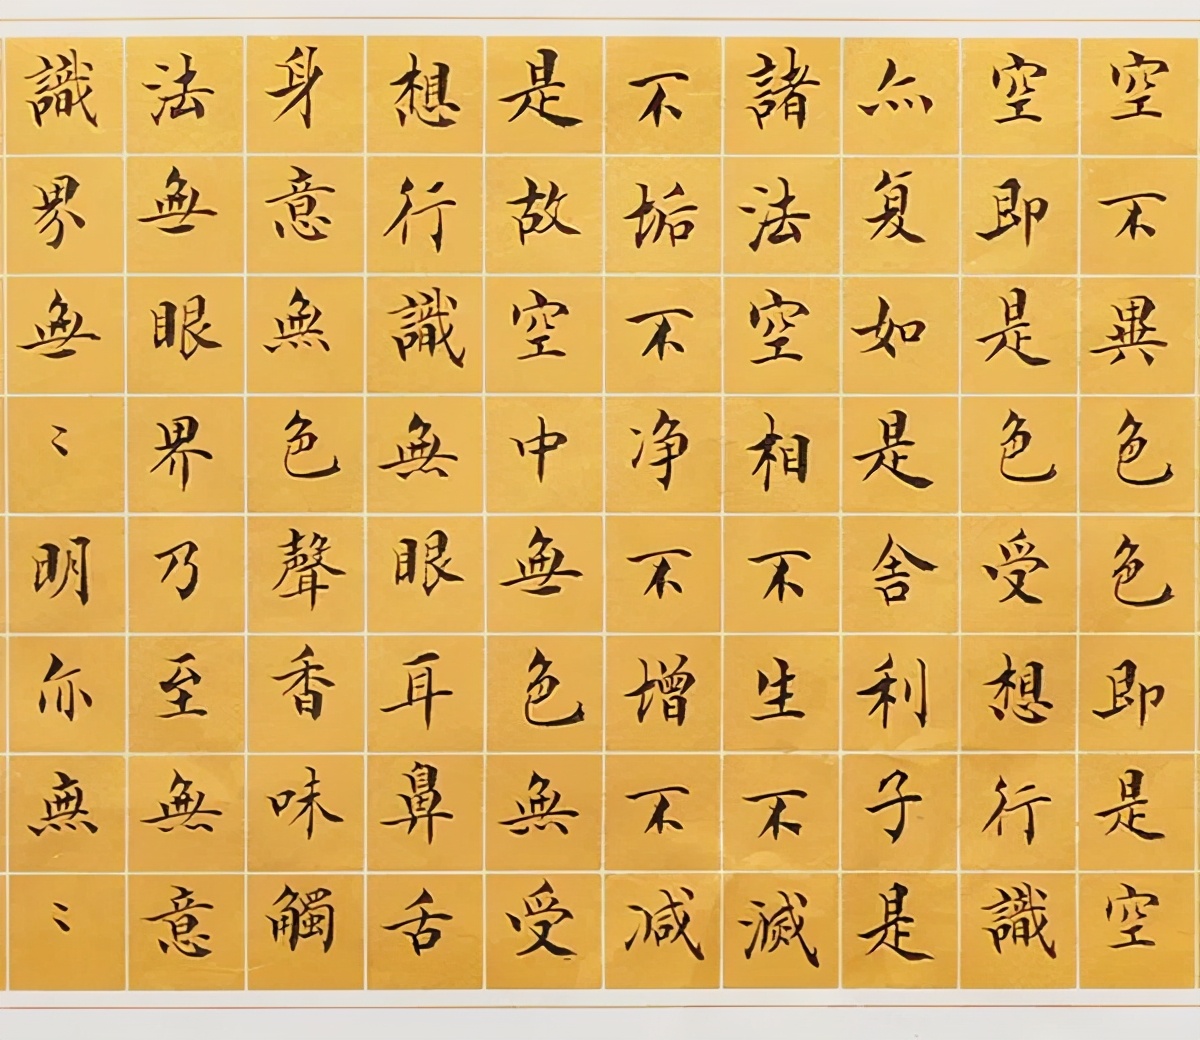 空不異色色即是空
空即是色受想行識
亦复如是舍利子是
諸法空相不生不滅
不垢不净不增不减
是故空中無色無受
想行識無眼耳鼻舌
身意無色聲香味觸
法無眼界乃至無意
識界無〻明亦無〻